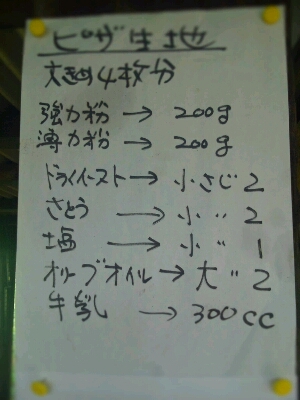 ピザ生地
大きめ4枚分
強力粉 → 200g
薄力粉 → 200g
ドライイースト → 小さじ2
さとう → 小〃2
塩 → 小〃1
オリーブオイル → 大〃2
牛乳 → 300cc